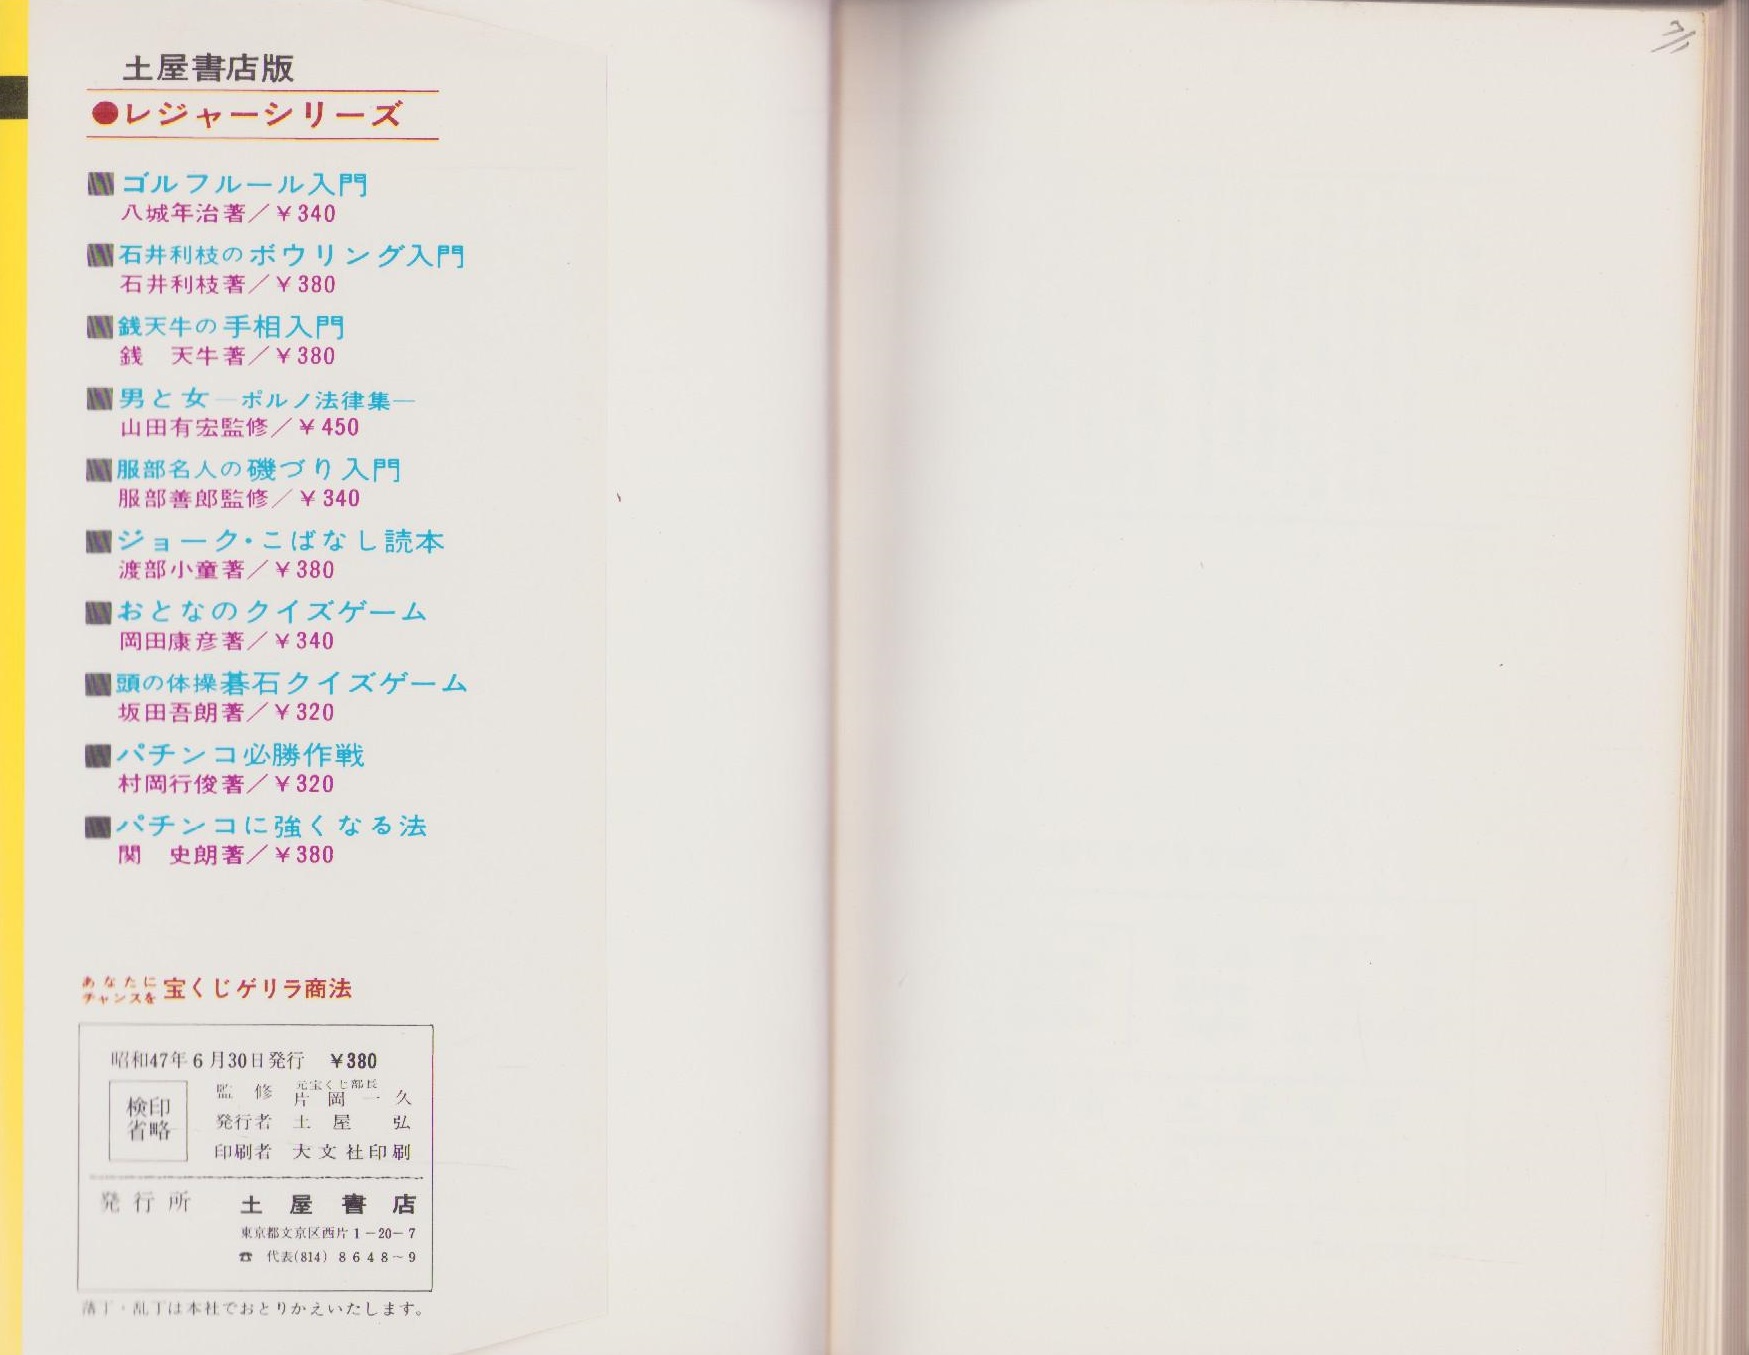 土屋書店版
●レジャーシリーズ
ゴルフルール入門
八城年治著／￥340
石井利枝のボウリング入門
石井利枝著／￥380
銭天牛の手相入門
銭　天牛著／￥380
男と女―ポルノ法律集―
山田有宏監修／￥450
服部名人の磯づり入門
服部善郎監修／￥340
ジョーク・こばなし読本
渡部小童著／￥380
おとなのクイズゲーム
岡田康彦著／￥340
頭の体操碁石クイズゲーム
坂田吾朗著／￥320
パチンコ必勝作戦
村岡行俊著／￥320
パチンコに強くなる法
関　史朗著／￥380
あなたに
チャンスを 宝くじゲリラ商法
昭和47年6月30日発行　￥380
検印
省略
元宝くじ部長
監　修　片岡一久
発行者　土　屋　弘
印刷者　大文社印刷
発行所　土屋書店
東京都文京区西片1－20－7
☎　代表(814) 8648～9
落丁・乱丁は本社でおとりかえいたします。